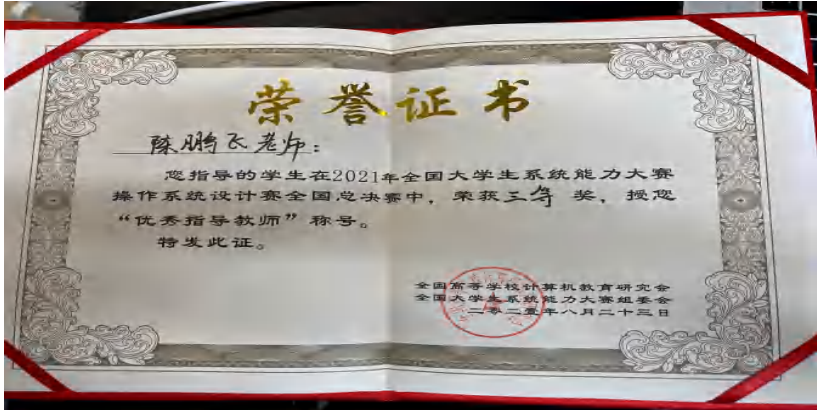 荣誉证书
陈鹏飞老师：
您指导的学生在2021年全国大学生系统能力大赛
操作系统设计赛全国总决赛中，荣获三等奖，授您
“优秀指导教师”称号。
特发此证。
全国高等学校计算机教育研究会
全国大学生系统能力大赛组委会
二零二壹年八月二十三日